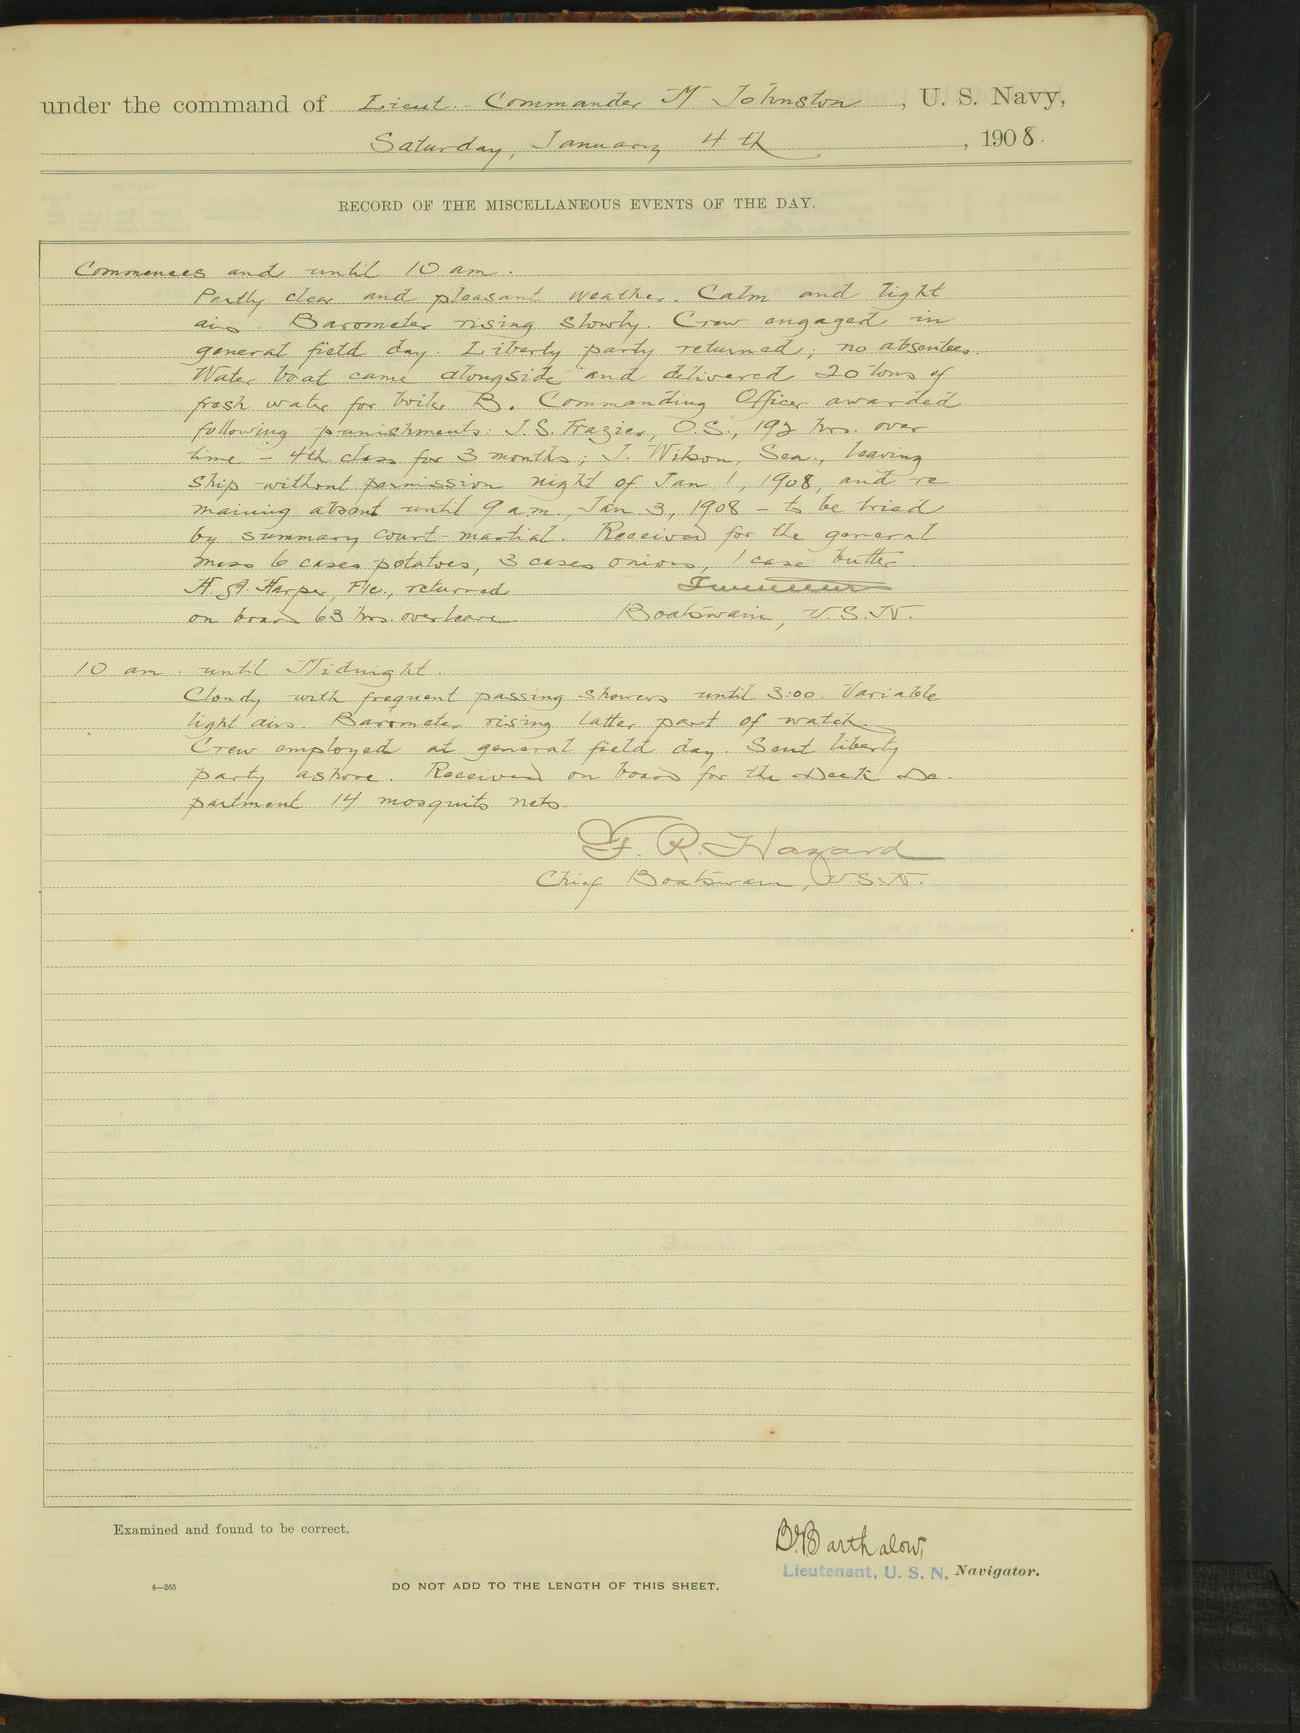 under the command of Lieut.-Commander M Johnston, U. S. Navy,
Saturday, January 4th, 1908.
RECORD OF THE MISCELLANEOUS EVENTS OF THE DAY.
Commences and until 10 am.
Partly clear and pleasant weather. Calm and light
airs. Barometer rising slowly. Crew engaged in
general field day. Liberty party returned; no absentees.
Water boat came alongside and delivered 20 tons of
fresh water for boiler B. Commanding Officer awarded
following punishments: J.S. Frazier, O.S., 192 hrs. over
time - 4th class for 3 months; J. Wilson, Sea., leaving
ship without permission night of Jan 1, 1908, and re
maining absent until 9 a.m., Jan 3, 1908 - to be tried
by summary court-martial. Received for the general
mess 6 cases potatoes, 3 cases onions, 1 case butter
H. A. Harper, F1c., returned
on board 63 hrs. overleave
Boatswain, U.S.N.
10 am. until Midnight.
Cloudy with frequent passing showers until 3:00. Variable
light airs. Barometer rising latter part of watch.
Crew employed at general field day. Sent liberty
party ashore. Received on board for the Deck De-
partment 14 mosquito nets.
F. R. Hazard
Chief Boatswain, U.S.N.
Examined and found to be correct.
B. Barthalow,
Lieutenant, U. S. N. Navigator.
4—265
DO NOT ADD TO THE LENGTH OF THIS SHEET.